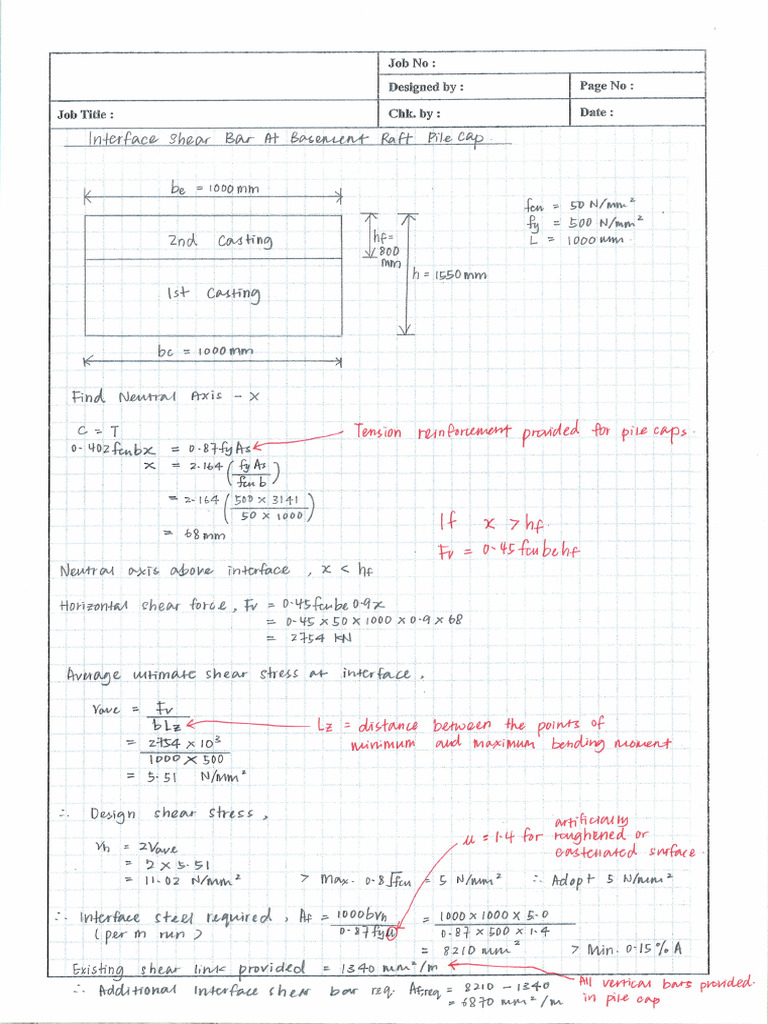 Job No :
Designed by :
Page No :
Job Title :
Chk. by :
Date :
Interface Shear Bar At Basement Raft Pile Cap
be = 1000 mm
2nd Casting
hf =
800
mm
h = 1550 mm
1st Casting
bc = 1000 mm
fcu = 50 N/mm²
fy = 500 N/mm²
L = 1000 mm
Find Neutral Axis - x
C = T
0.402 fcu b x = 0.87 fy As
Tension reinforcement provided for pile caps.
x = 2.164 (fy As / fcu b)
= 2.164 (500 x 3141 / 50 x 1000)
= 68 mm
If x > hf.
Fv = 0.45 fcu be hf
Neutral axis above interface , x < hf
Horizontal shear force, Fv = 0.45 fcu be 0.9 x
= 0.45 x 50 x 1000 x 0.9 x 68
= 2754 kN
Average ultimate shear stress at interface,
Vave = Fv / b Lz
Lz = distance between the points of
minimum and maximum bending moment
= 2754 x 10³ / 1000 x 500
= 5.51 N/mm²
∴ Design shear stress,
artificially
μ = 1.4 for roughened or
castenated surface.
Vh = 2Vave
= 2 x 5.51
= 11.02 N/mm² > Max. 0.8√fcu = 5 N/mm² ∴ Adopt 5 N/mm²
∴ Interface steel required, Af = 1000bvh / 0.87fyμ = 1000 x 1000 x 5.0 / 0.87 x 500 x 1.4
(per m run)
= 8210 mm² > Min. 0.15% A
Existing shear link provided = 1340 mm²/m
All vertical bars provided
in pile cap
∴ Additional interface shear bar req. Af,req = 8210 - 1340
= 6870 mm²/m